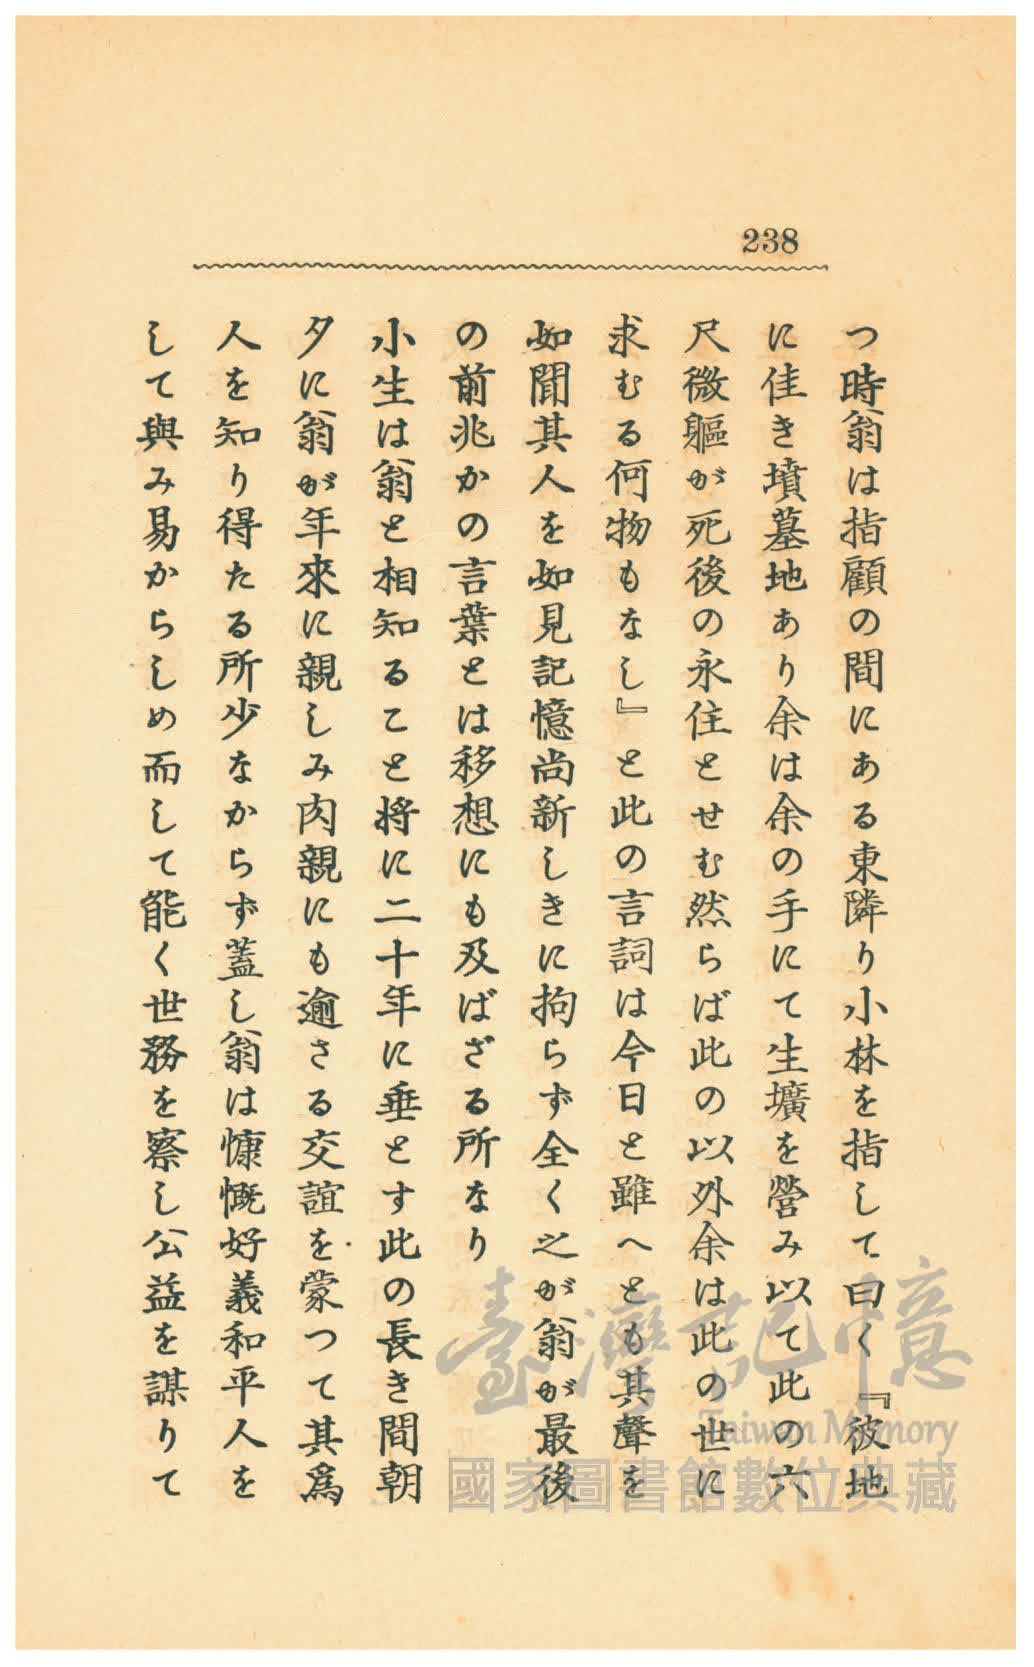 238
つ時翁は指顧の間にある東隣り小林を指して曰く『彼地
に佳き墳墓地あり余は余の手にて生壙を營み以て此の六
尺微軀が死後の永住とせむ然らば此の以外余は此の世に
求むる何物もなし』と此の言詞は今日と雖へとも其聲を
如聞其人を如見記憶尚新しきに拘らず全く之が翁が最後
の前兆かの言葉とは移想にも及ばざる所なり
小生は翁と相知ること將に二十年に垂とす此の長き間朝
夕に翁が年來に親しみ肉親にも逾さる交誼を蒙つて其爲
人を知り得たる所少なからず蓋し翁は慷慨好義和平人を
して與み易からしめ而して能く世務を察し公益を謀りて
臺灣記憶
Taiwan Memory
國家圖書館數位典藏